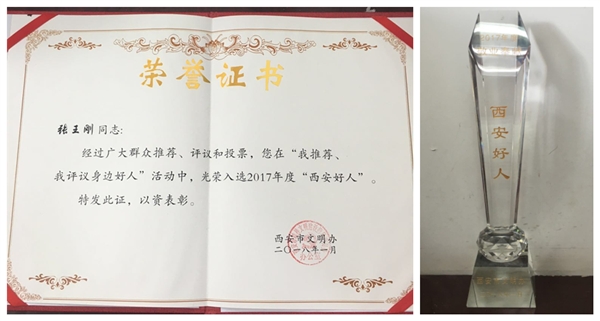 荣誉证书
张王刚同志:
经过广大群众推荐、评议和投票，您在“我推荐、
我评议身边好人”活动中，光荣入选2017年度“西安好人”。
特发此证，以资表彰。
西安市文明办
二〇一八年一月
办公室
西安好人